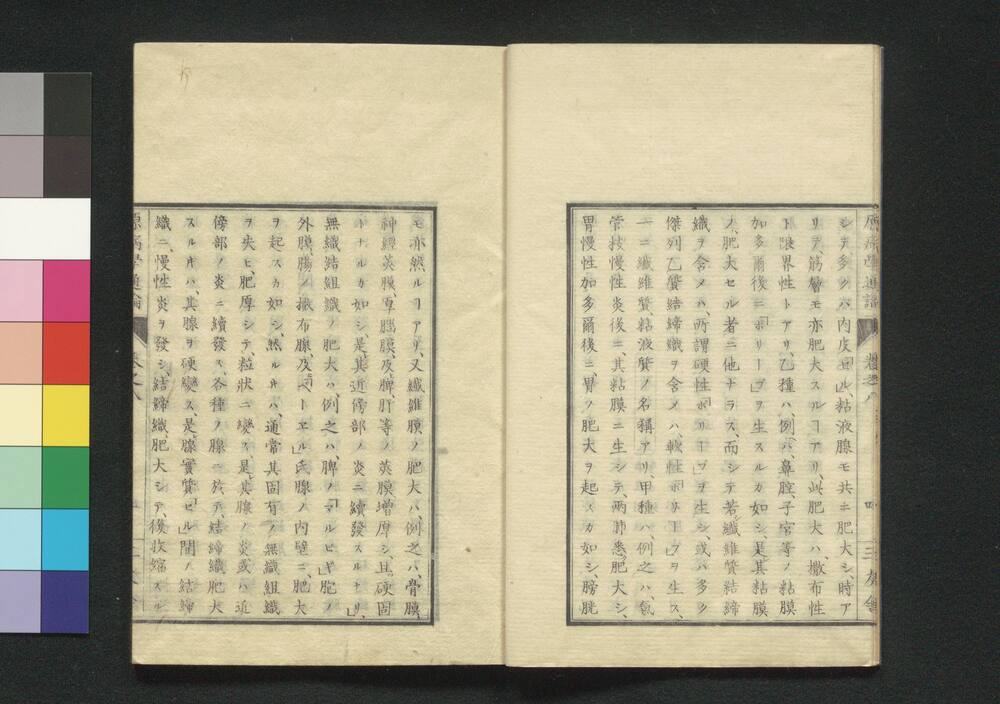 シテ多クハ内皮「セル」粘液腺モ共ニ肥大シ時ア
リテ筋層モ亦肥大スルヿアリ、此肥大ハ、撒布性
ト限界性トアリ、乙種ハ、例之ハ、鼻腔、子宮等ノ粘膜
加多爾後ニ「ポリープ」ヲ生スルカ如シ、是其粘膜
ノ、肥大セル者ニ他ナラス、而シテ若纖維質結締
織ヲ含メハ、所謂硬性「ポリープ」ヲ生シ、或ハ多ク
傑列乙質結締織ヲ含メハ、軟性「ポリープ」ヲ生ス、
一ニ纖維質、粘液質ノ名稱アリ甲種ハ、例之ハ、氣
管技慢性炎後ニ、其粘膜ニ生シテ、兩肺悉ク肥大シ、
胃慢性加多爾後ニ、胃ノ肥大ヲ起スカ如シ、膀胱
モ亦然ルヿアリ、又纖維膜ノ肥大ハ、例之ハ、骨膜、
神經莢膜、腦膜、及脾、肝等ノ莢膜增厚シ、且硬固
トナルカ如シ、是其近傍部ノ炎ニ續發スルナリ、
無織結組織ノ肥大ハ、例之ハ、脾ノ「マルピギ」肥ノ
外膜、腸ノ撒布腺、及「ペーエル」氏腺ノ内壁ニ、肥大
ヲ起スカ如シ、然ルキハ、通常其固有ノ無織組織
ヲ失ヒ、肥厚シテ、粒狀ニ變ス、是其腺ノ炎或ハ近
傍部ノ炎ニ續發ス、各種ノ腺ニ於テ、結締織肥大
スルキハ、其腺ヲ硬變ス、是腺實質「セル」間ノ結締
織ニ、慢性炎ヲ發シ、結締織肥大シテ、後收縮スル